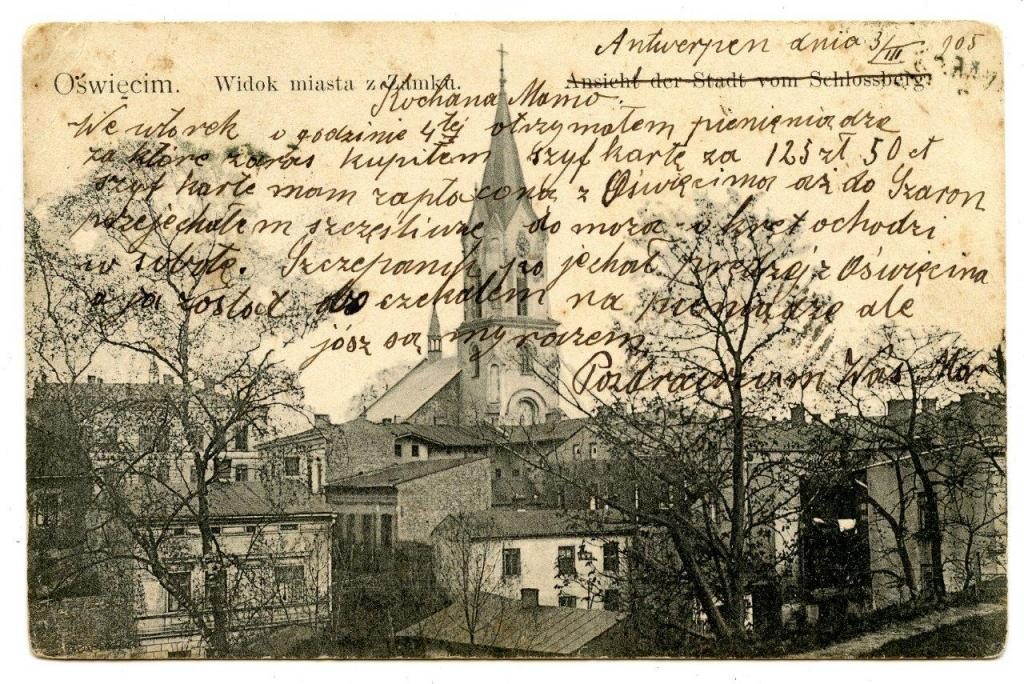 Antwerpen dnia 3/III 905
Oświęcim. Widok miasta z Zamku. Ansicht der Stadt vom Schlossberg.
Kochana Mamo.
We wtorek o godzinie 4tej otrzymałem pienięniądze
za które zaras kupiłem szyf kartę za 125 zł 50 ct
szyf kartę mam zapłaconą z Oświęcima aż do Szaron
przejechałem szczęśliwie do moza okręt ochodzi
w sobotę. Szczepanyk po jechał prędzej z Oświęcima
a ja został do czekałem na pieniądze ale
jósz są my razem
Pozdrawiam Was